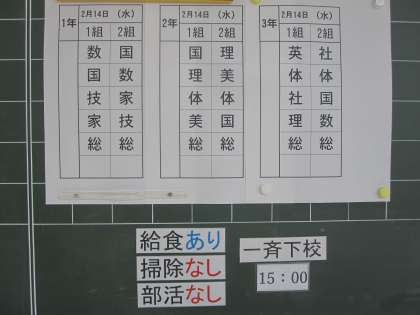 1年 2月14日 (水) 2年 2月14日 (水) 3年 2月14日 (水)
1組 2組 1組 2組 1組 2組
数 国 国 理 英 社
国 数 理 美 体 体
技 家 体 体 社 国
家 技 美 国 理 数
総 総 総 総 総 総
給食あり
掃除なし
部活なし
一斉下校
15:00